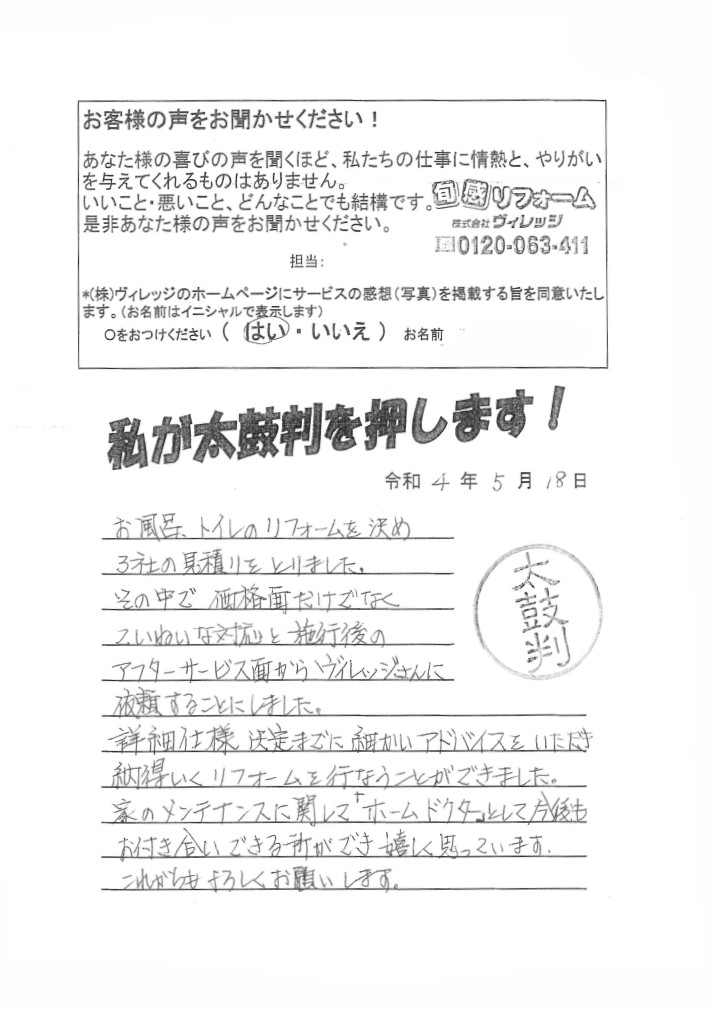 お客様の声をお聞かせください！
あなた様の喜びの声を聞くほど、私たちの仕事に情熱と、やりがい
を与えてくれるものはありません。
いいこと・悪いこと、どんなことでも結構です。
是非あなた様の声をお聞かせください。
旬感リフォーム
株式会社ヴィレッジ
0120-063-411
担当：
*(株)ヴィレッジのホームページにサービスの感想（写真）を掲載する旨を同意いたし
ます。（お名前はイニシャルで表示します）
○をおつけください（ はい ・ いいえ ） お名前
私が太鼓判を押します！
令和 4 年 5 月 18 日
お風呂、トイレのリフォームを決め
3社の見積りをとりました。
その中で 価格面だけでなく
ていねいな対応と施行後の
アフターサービス面からヴィレッジさんに
依頼することにしました。
詳細仕様 決定までに 細かいアドバイスをいただき
納得いくリフォームを行なうことができました。
家のメンテナンスに関して「ホームドクター」として今後も
お付き合いできる所ができ 嬉しく思っています.
これからもよろしくお願いします。
太鼓判